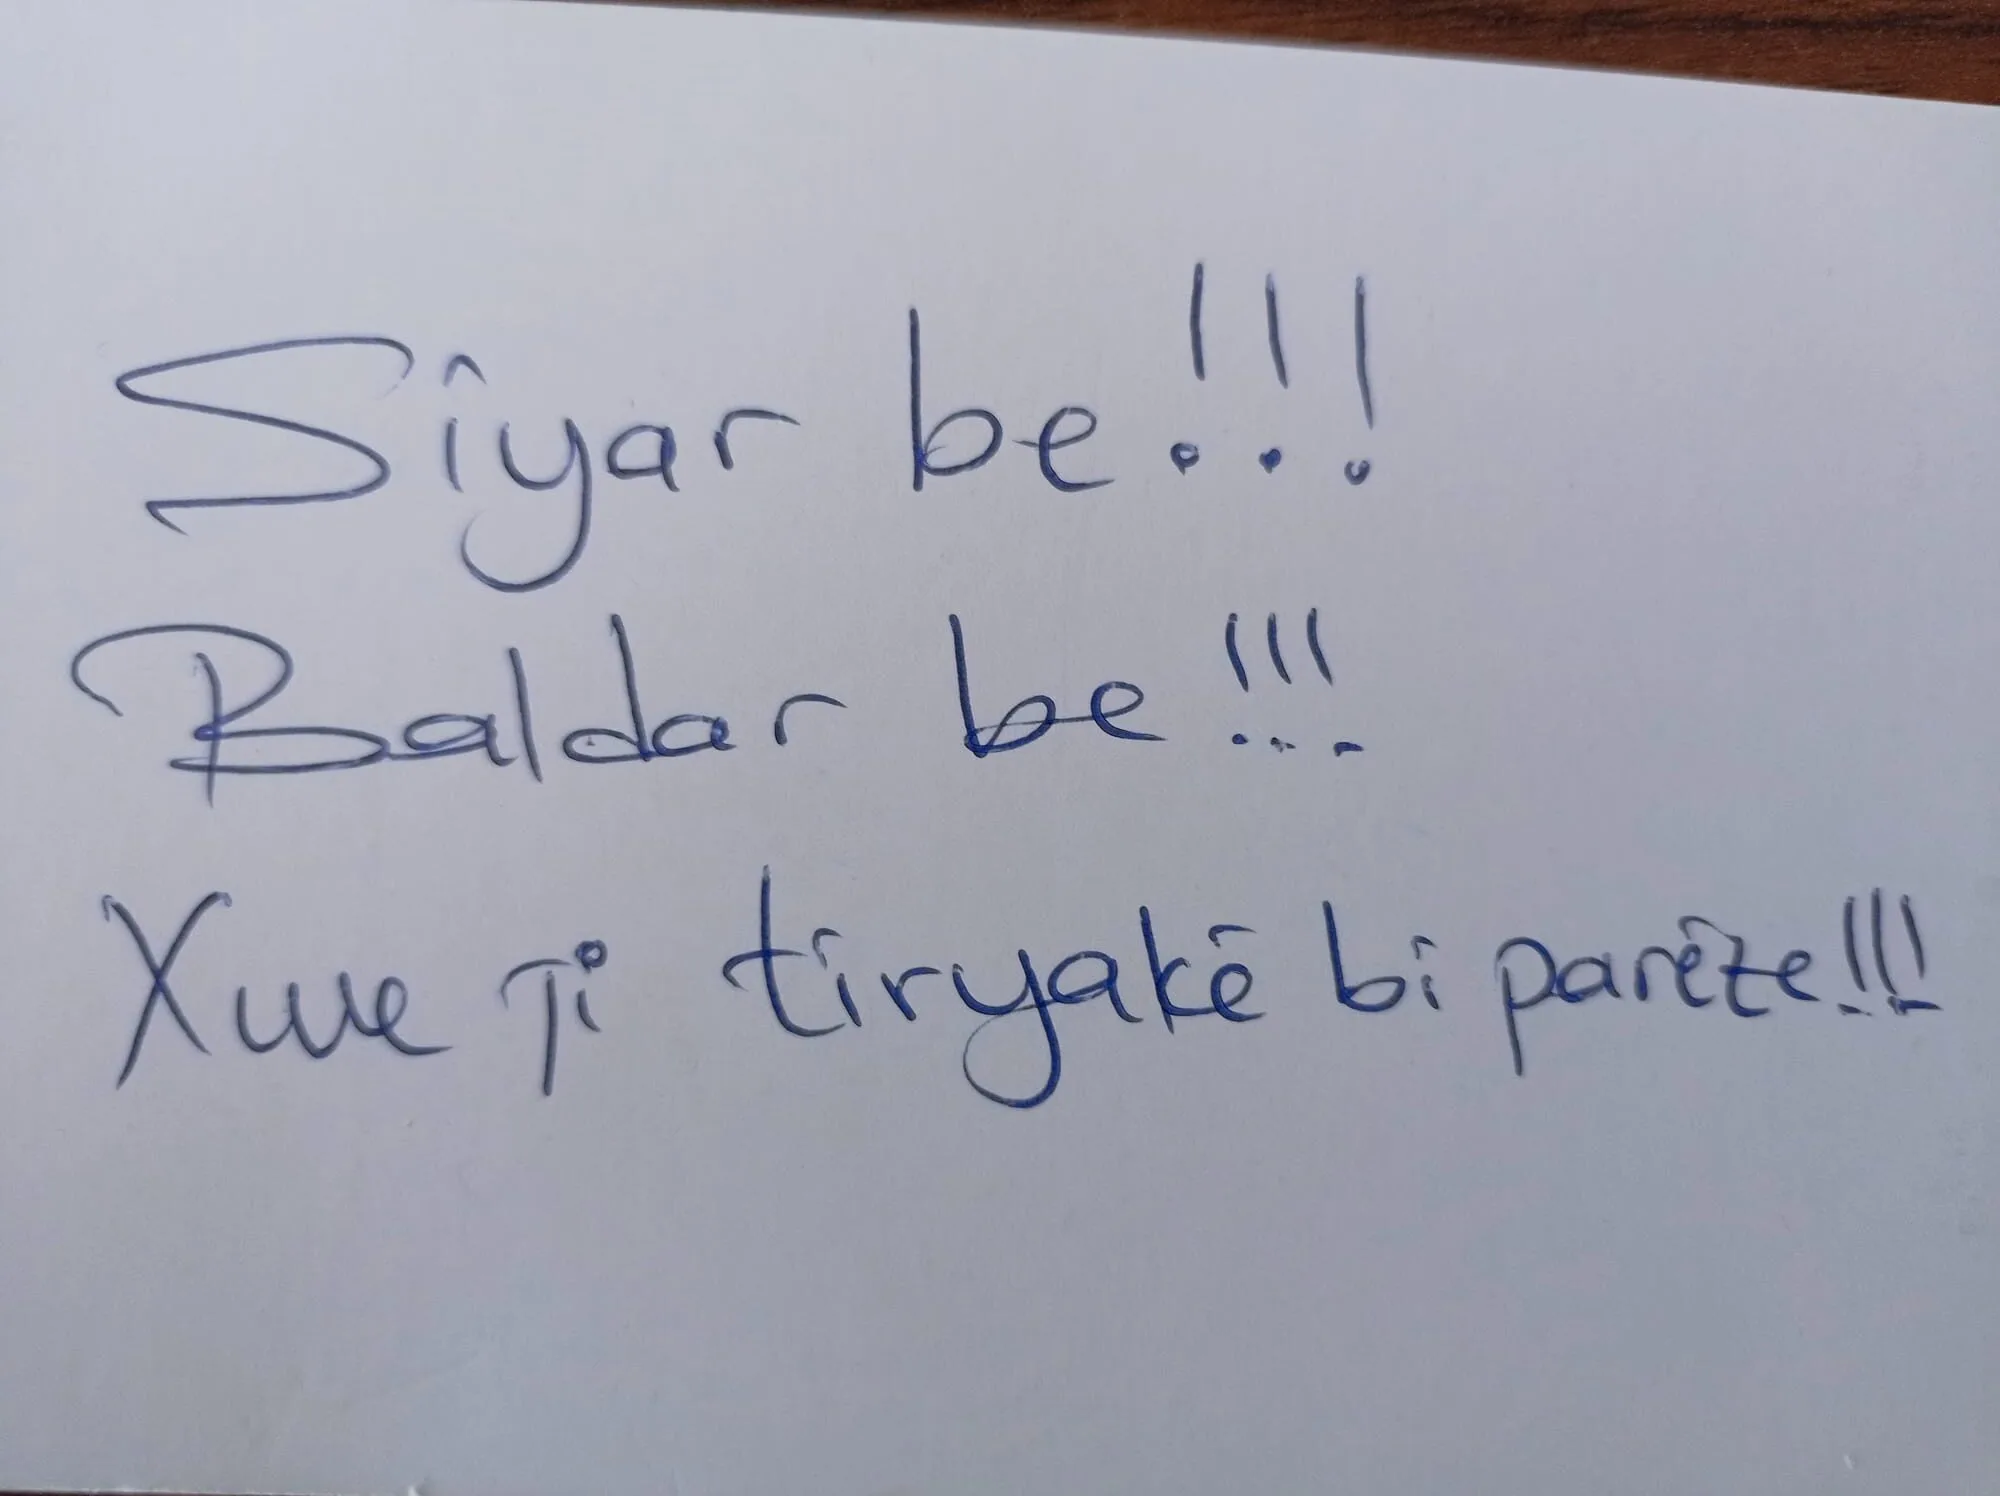 Sîyar be!!!
Baldar be!!!
Xwe ji tîryakê bi parêze!!!